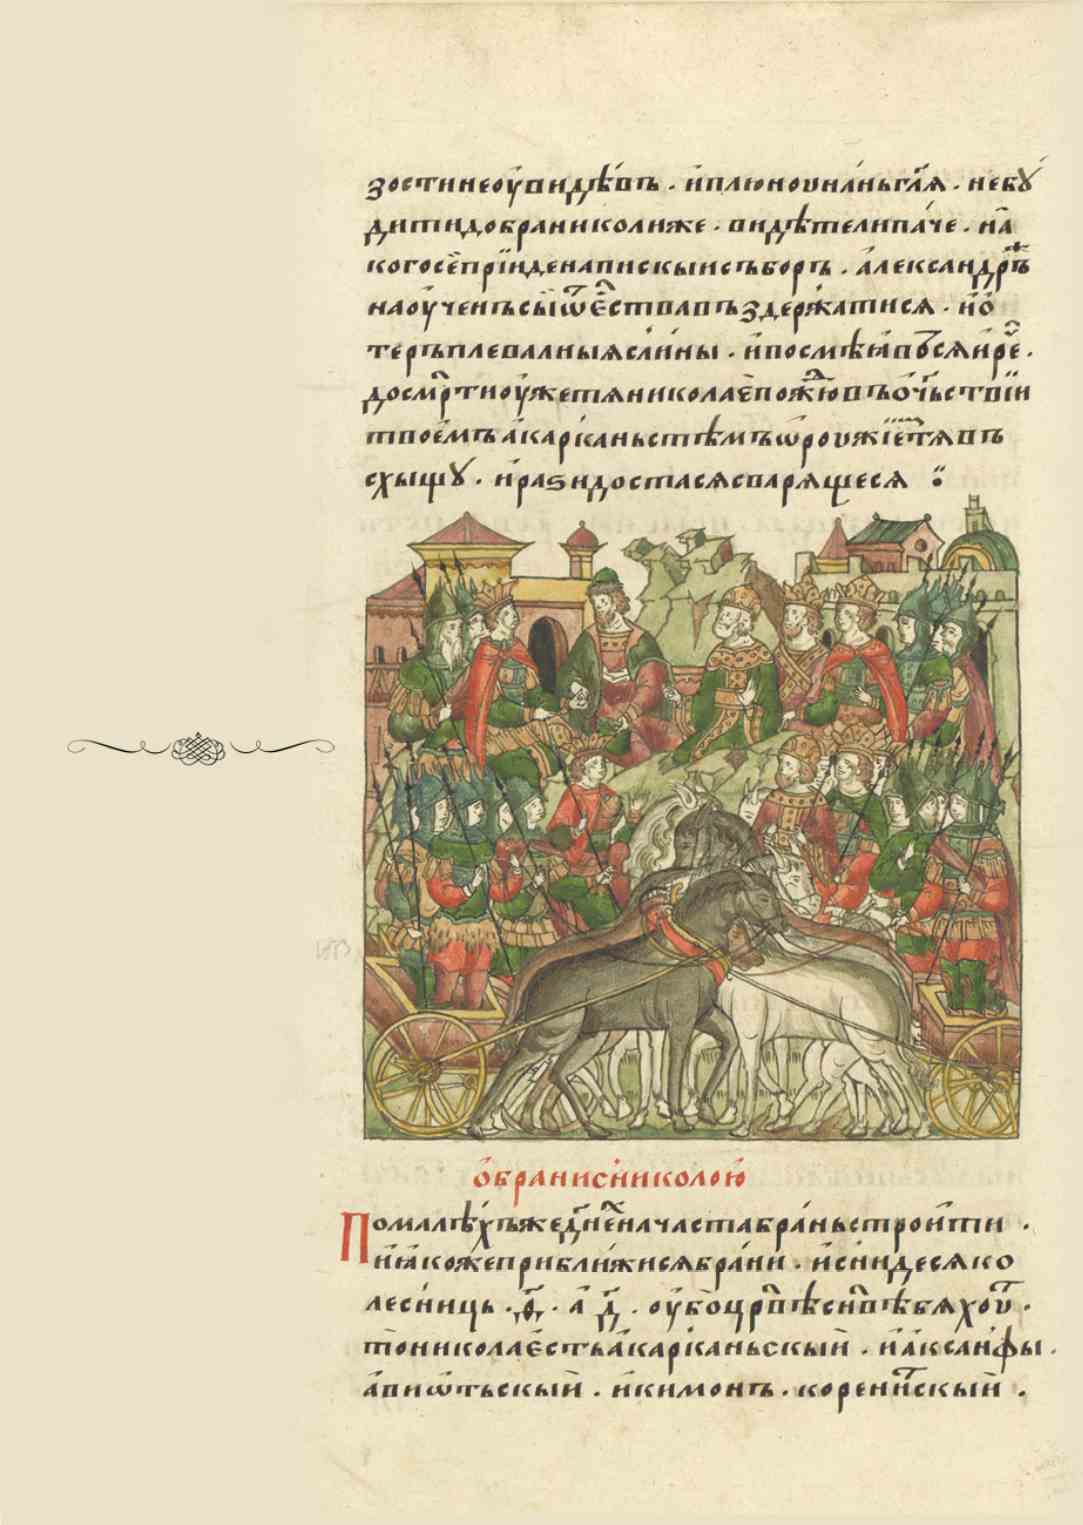 зостинеоувидѣвъ · иплюноvнаньгл҃я · небꙋ
дитидобраниколиже · видѣтелипаче · на
когосепрїиденапискыисъборъ · александръ
наоученъсыиѿе҃ствавъздержатися · ио
теръплевалныяслины · ипосмѣявъсяире ·
досмр҃тиоужетяниколаепожювъоч҃ьствїи
твоемъакарканьстѣмъѡроужїетявъ
схыщꙋ · иразидостасясварящеся ⁘
обранисниколою
Помалѣхъжедн҃еначастабраньстроити ·
иꙗкожеприближисябрани · исниидесяко
лесниць · ѳ҃ · а д҃ · оубоцр҃вѣсн҃вѣбяхоу ·
тониколаестьакарканьскый · иаксанфы ·
авиѿтьскый · икимонъ · коренитскый ·